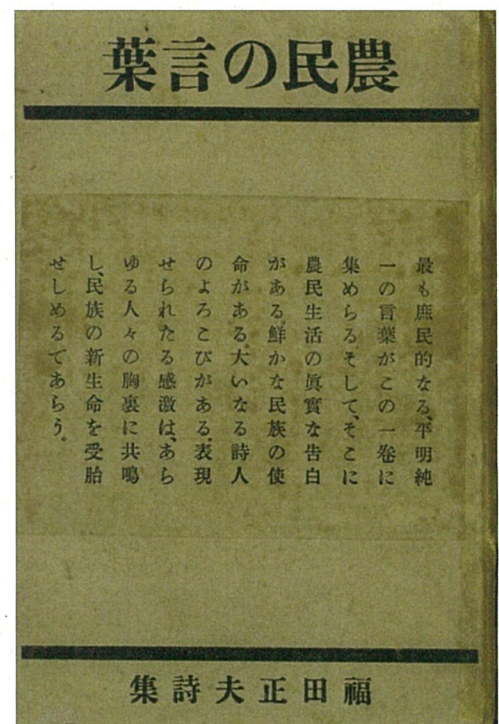 農民の言葉
最も庶民的なる、平明純
一の言葉がこの一卷に
集めらる。そして、そこに
農民生活の眞實な告白
がある。鮮かな民族の使
命がある。大いなる詩人
のよろこびがある。表現
せられたる感激は、あら
ゆる人々の胸裏に共鳴
し、民族の新生命を受胎
せしめるであらう。
福田正夫詩集